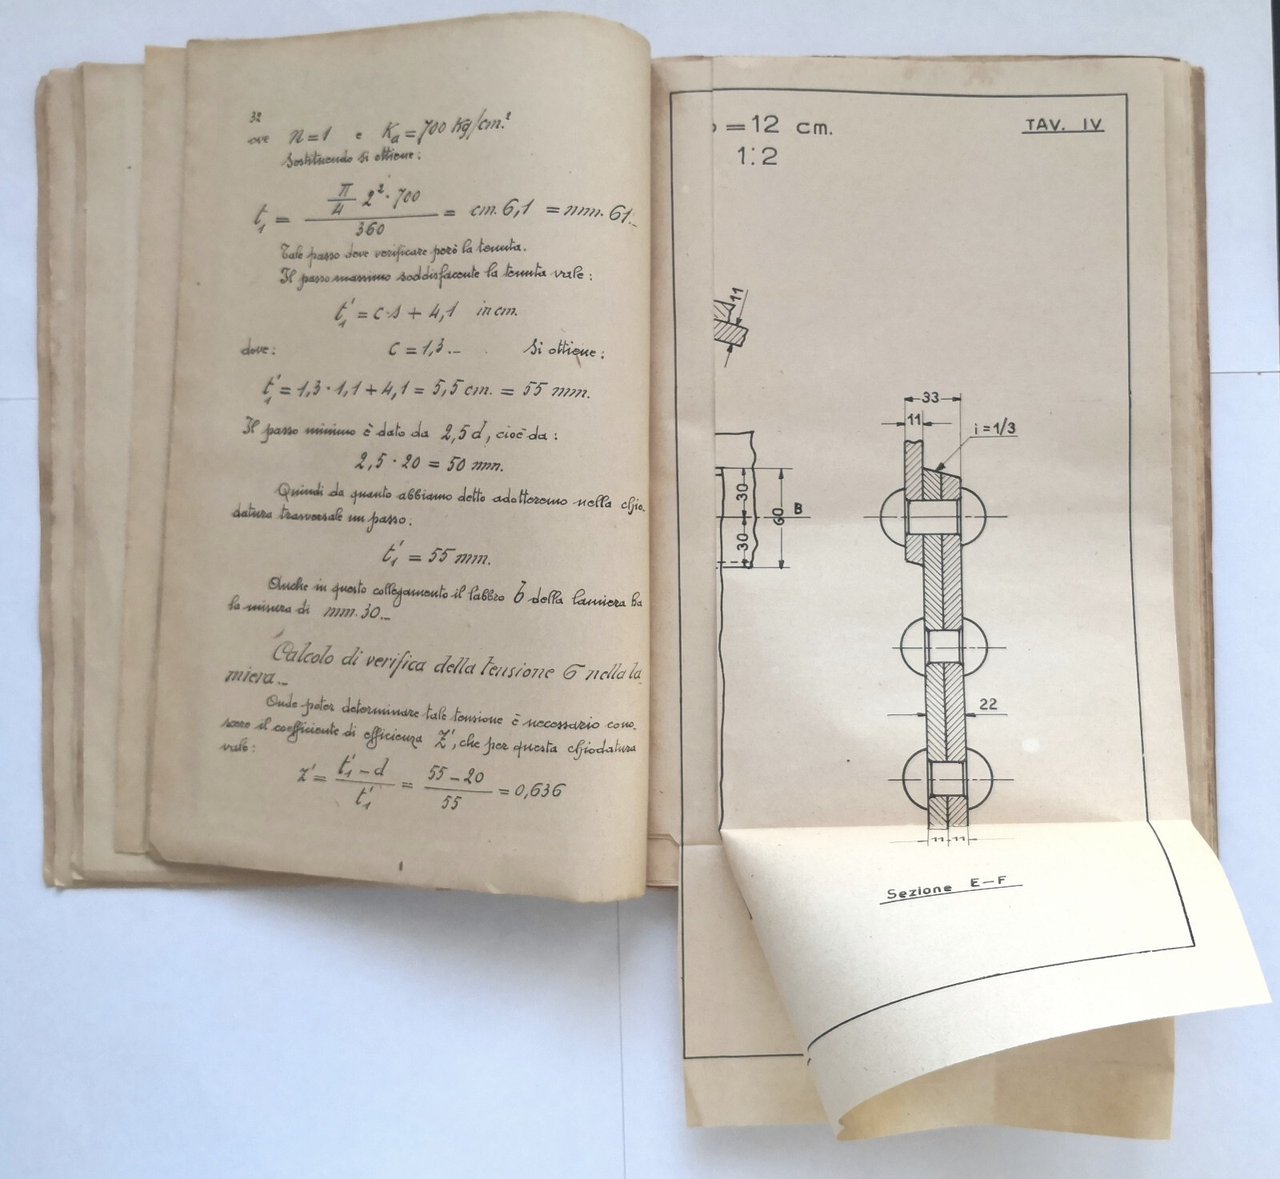 32
ove n=1 e Ka=700 Kg/cm.²
Sostituendo si ottiene:
t₁ = π/4 2²·700 / 360 = cm. 6,1 = mm. 61.-
Tale passo deve verificare però la tenuta.
Il passo massimo soddisfacente la tenuta vale:
t'₁ = c·s + 4,1 in cm.
dove: c = 1,3.- Si ottiene:
t'₁ = 1,3·1,1 + 4,1 = 5,5 cm. = 55 mm.
Il passo minimo è dato da 2,5 d, cioè da:
2,5·20 = 50 mm.
Quindi da quanto abbiamo detto adotteremo nella chio-
datura trasversale un passo:
t'₁ = 55 mm.
Anche in questo collegamento il labbro b della lamiera ha
la misura di mm. 30.-
Calcolo di verifica della tensione σ nella la-
miera.-
Onde poter determinare tale tensione è necessario cono-
scere il coefficiente di efficienza Z', che per questa chiodatura
vale:
Z' = t'₁ - d / t'₁ = 55 - 20 / 55 = 0,636
= 12 cm.
1:2
TAV. IV
11
33
11
i = 1/3
30
60
B
30
22
11 11
Sezione E-F